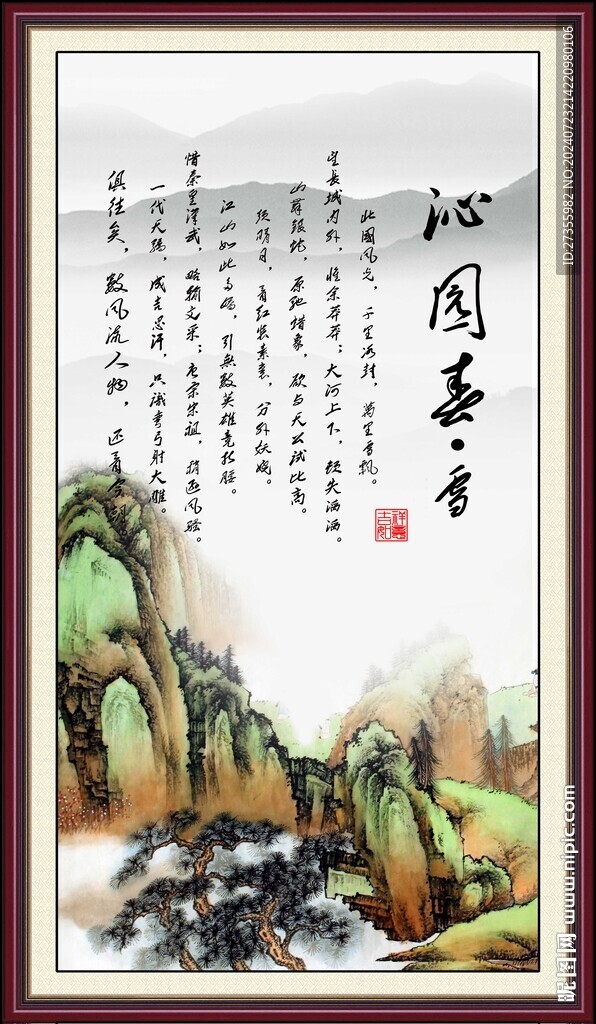 沁园春·雪
北國风光，千里冰封，萬里雪飘。
望長城内外，惟余莽莽；大河上下，顿失滔滔。
山舞銀蛇，原驰蜡象，欲与天公试比高。
须晴日，看红装素裹，分外妖娆。
江山如此多娇，引無數英雄竞折腰。
惜秦皇漢武，略输文采；唐宗宋祖，稍逊风骚。
一代天骄，成吉思汗，只识弯弓射大雕。
俱往矣，數风流人物，还看今朝
ID:27355982 NO.20240723214220980106
昵图网 www.nipic.com